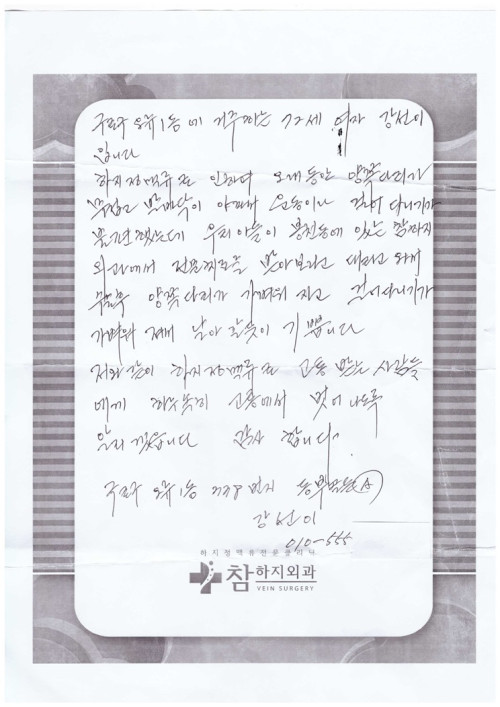 구로구 오류1동에 거주하는 72세 여자 강선이
입니다
하지정맥류로 인하여 오래동안 양쪽다리가
무겁고 발바닥이 아파서 운동이나 걸어다니기가
불편했는데 우리아들이 봉천동에 있는 참하지
외과에서 전문치료를 받아보라고 데리고 와서
수술후 양쪽다리가 가벼워 지고 걸어다니기가
가벼워 져서 날아갈듯이 기쁩니다
저와같이 하지정맥류로 고통 받는 사람들
에게 하루속히 고통에서 벗어나도록
알리겠습니다 감사 합니다
구로구 오류1동 번지
강선이
010-555
하지정맥류전문클리닉
참하지외과
VEIN SURGERY